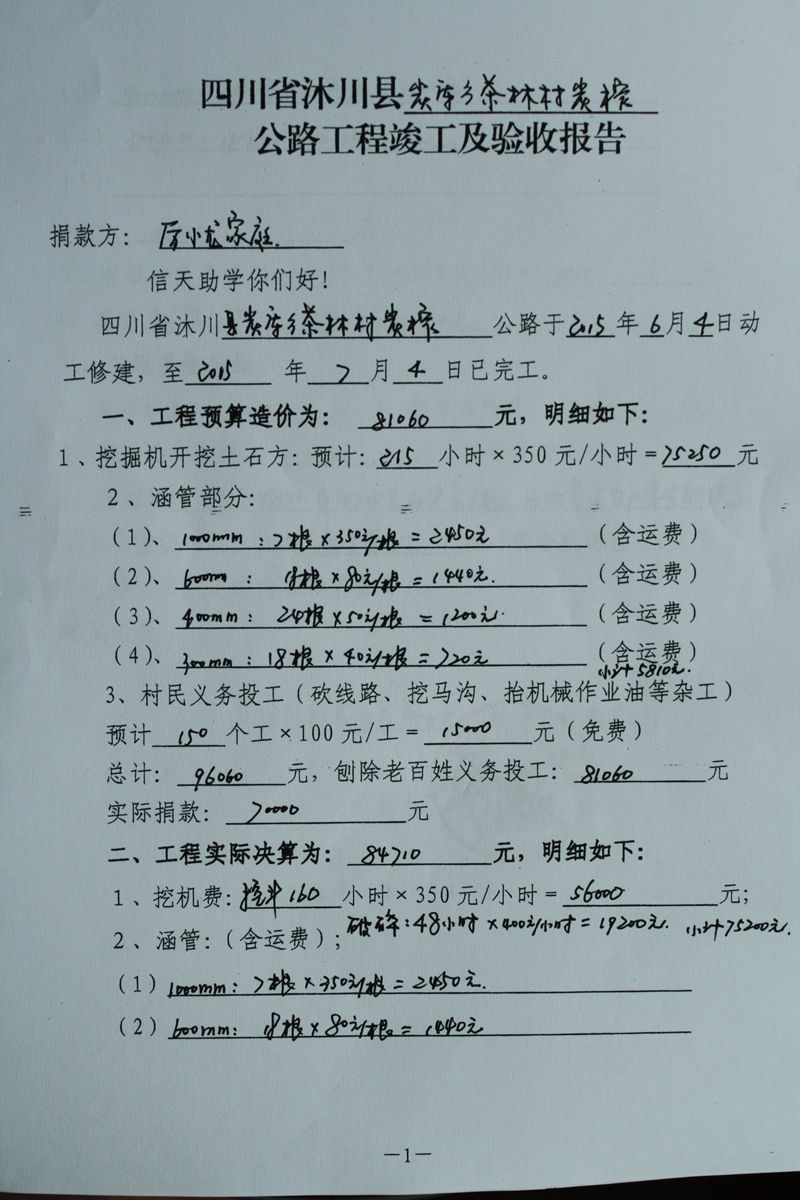 四川省沐川县炭库乡茶林村炭
公路工程竣工及验收报告
捐款方：厉小龙家庭
信天助学你们好！
四川省沐川县炭库乡茶林村炭 公路于2015年6月4日动
工修建，至2015年7月4日已完工。
一、工程预算造价为：81060元，明细如下：
1、挖掘机开挖土石方：预计：215小时×350元/小时=75250元
2、涵管部分：
（1）、1000mm：7根×350元/根=2450元（含运费）
（2）、600m：18根×80元/根=1440元.（含运费）
（3）、400mm：24根×50元/根=1200元.（含运费）
（4）、300mm：18根×40元/根=720元（含运费）
小计5810元.
3、村民义务投工（砍线路、挖马沟、抬机械作业油等杂工）
预计150个工×100元/工=15000元（免费）
总计：96060元，刨除老百姓义务投工：81060元
实际捐款：70000元
二、工程实际决算为：84710元，明细如下：
1、挖机费：挖斗160小时×350元/小时=56000元；
破碎：48小时×400元/小时=19200元. 小计75200元.
2、涵管：（含运费）；
（1）1000mm：7根×350元/根=2450元.
（2）600mm：18根×80元/根=1440元
—1—